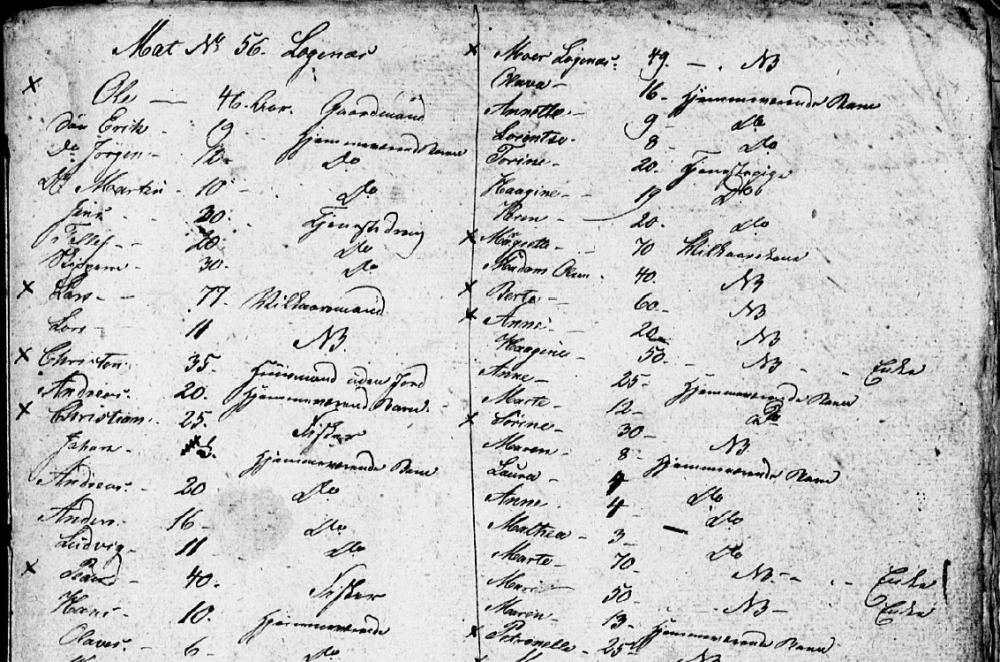 Mat No 56. Løgenæs
Ole — 46. Aar. Gaardmand
Søn Erik - 19 - Hjemmeværende Barn
Do Jørgen - 12 - Do
Do Martin - 10 - Do
Jens - 30. Tjenestedreng
20. Do
30. Do
x Lars - 77. Vilkaarsmand
Lars - 11 NB
x Christen 35. Huusmand uden Jord
Andreas. 20. Hjemmeværend Barn.
x Christian. 25. Fisker
Johan Hjemmeværende Barn
Andreas. - 20 Do
Anders. - 16 - Do
Ludvig - 11 Do
x 40. Fisker
Hans - 10. Hjemmeværende
Olaves. - 6 - Do
x Moer Løgenæs. 49. - . NB
Olava - 16 - Hjemmeværende Barn
Annette - 9 - Do
Lorentse. 8 - Do
Torine - 20. Tjenestepige
Haagine - 19 Do
Karen - 20. Do
x 70 Vilkaarskone
Madam Olsen. 40. NB
x Berte - 60. NB
x Anne - 20 NB
Haagine 50. - NB - - Enke
Anne - 25 - Hjemmeværende Barn
Marte - 12 - Do
x Sørine - 30 - NB
Maren - 8 - Hjemmeværende Barn
Laura - 4 Do
Anne - 4 - Do
Mathea - 3 - Do
Marte - 70 - NB - - . - Enke
Marie - 50 - - NB - Enke
Maren - 13 - Hjemmeværende Barn
x Petronelle - 25 NB